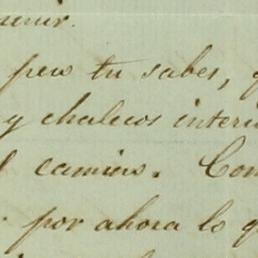 pero tu sabes,
y chalecos interi
camino. Com
por ahora lo q